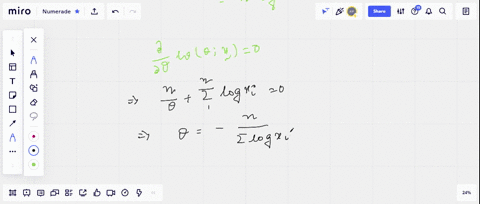 miro Numerade Share
∂/∂θ log(θ; x) = 0
⇒ n/θ + Σ₁ⁿ log xᵢ = 0
⇒ θ = - n/(Σ log xᵢ)
24%